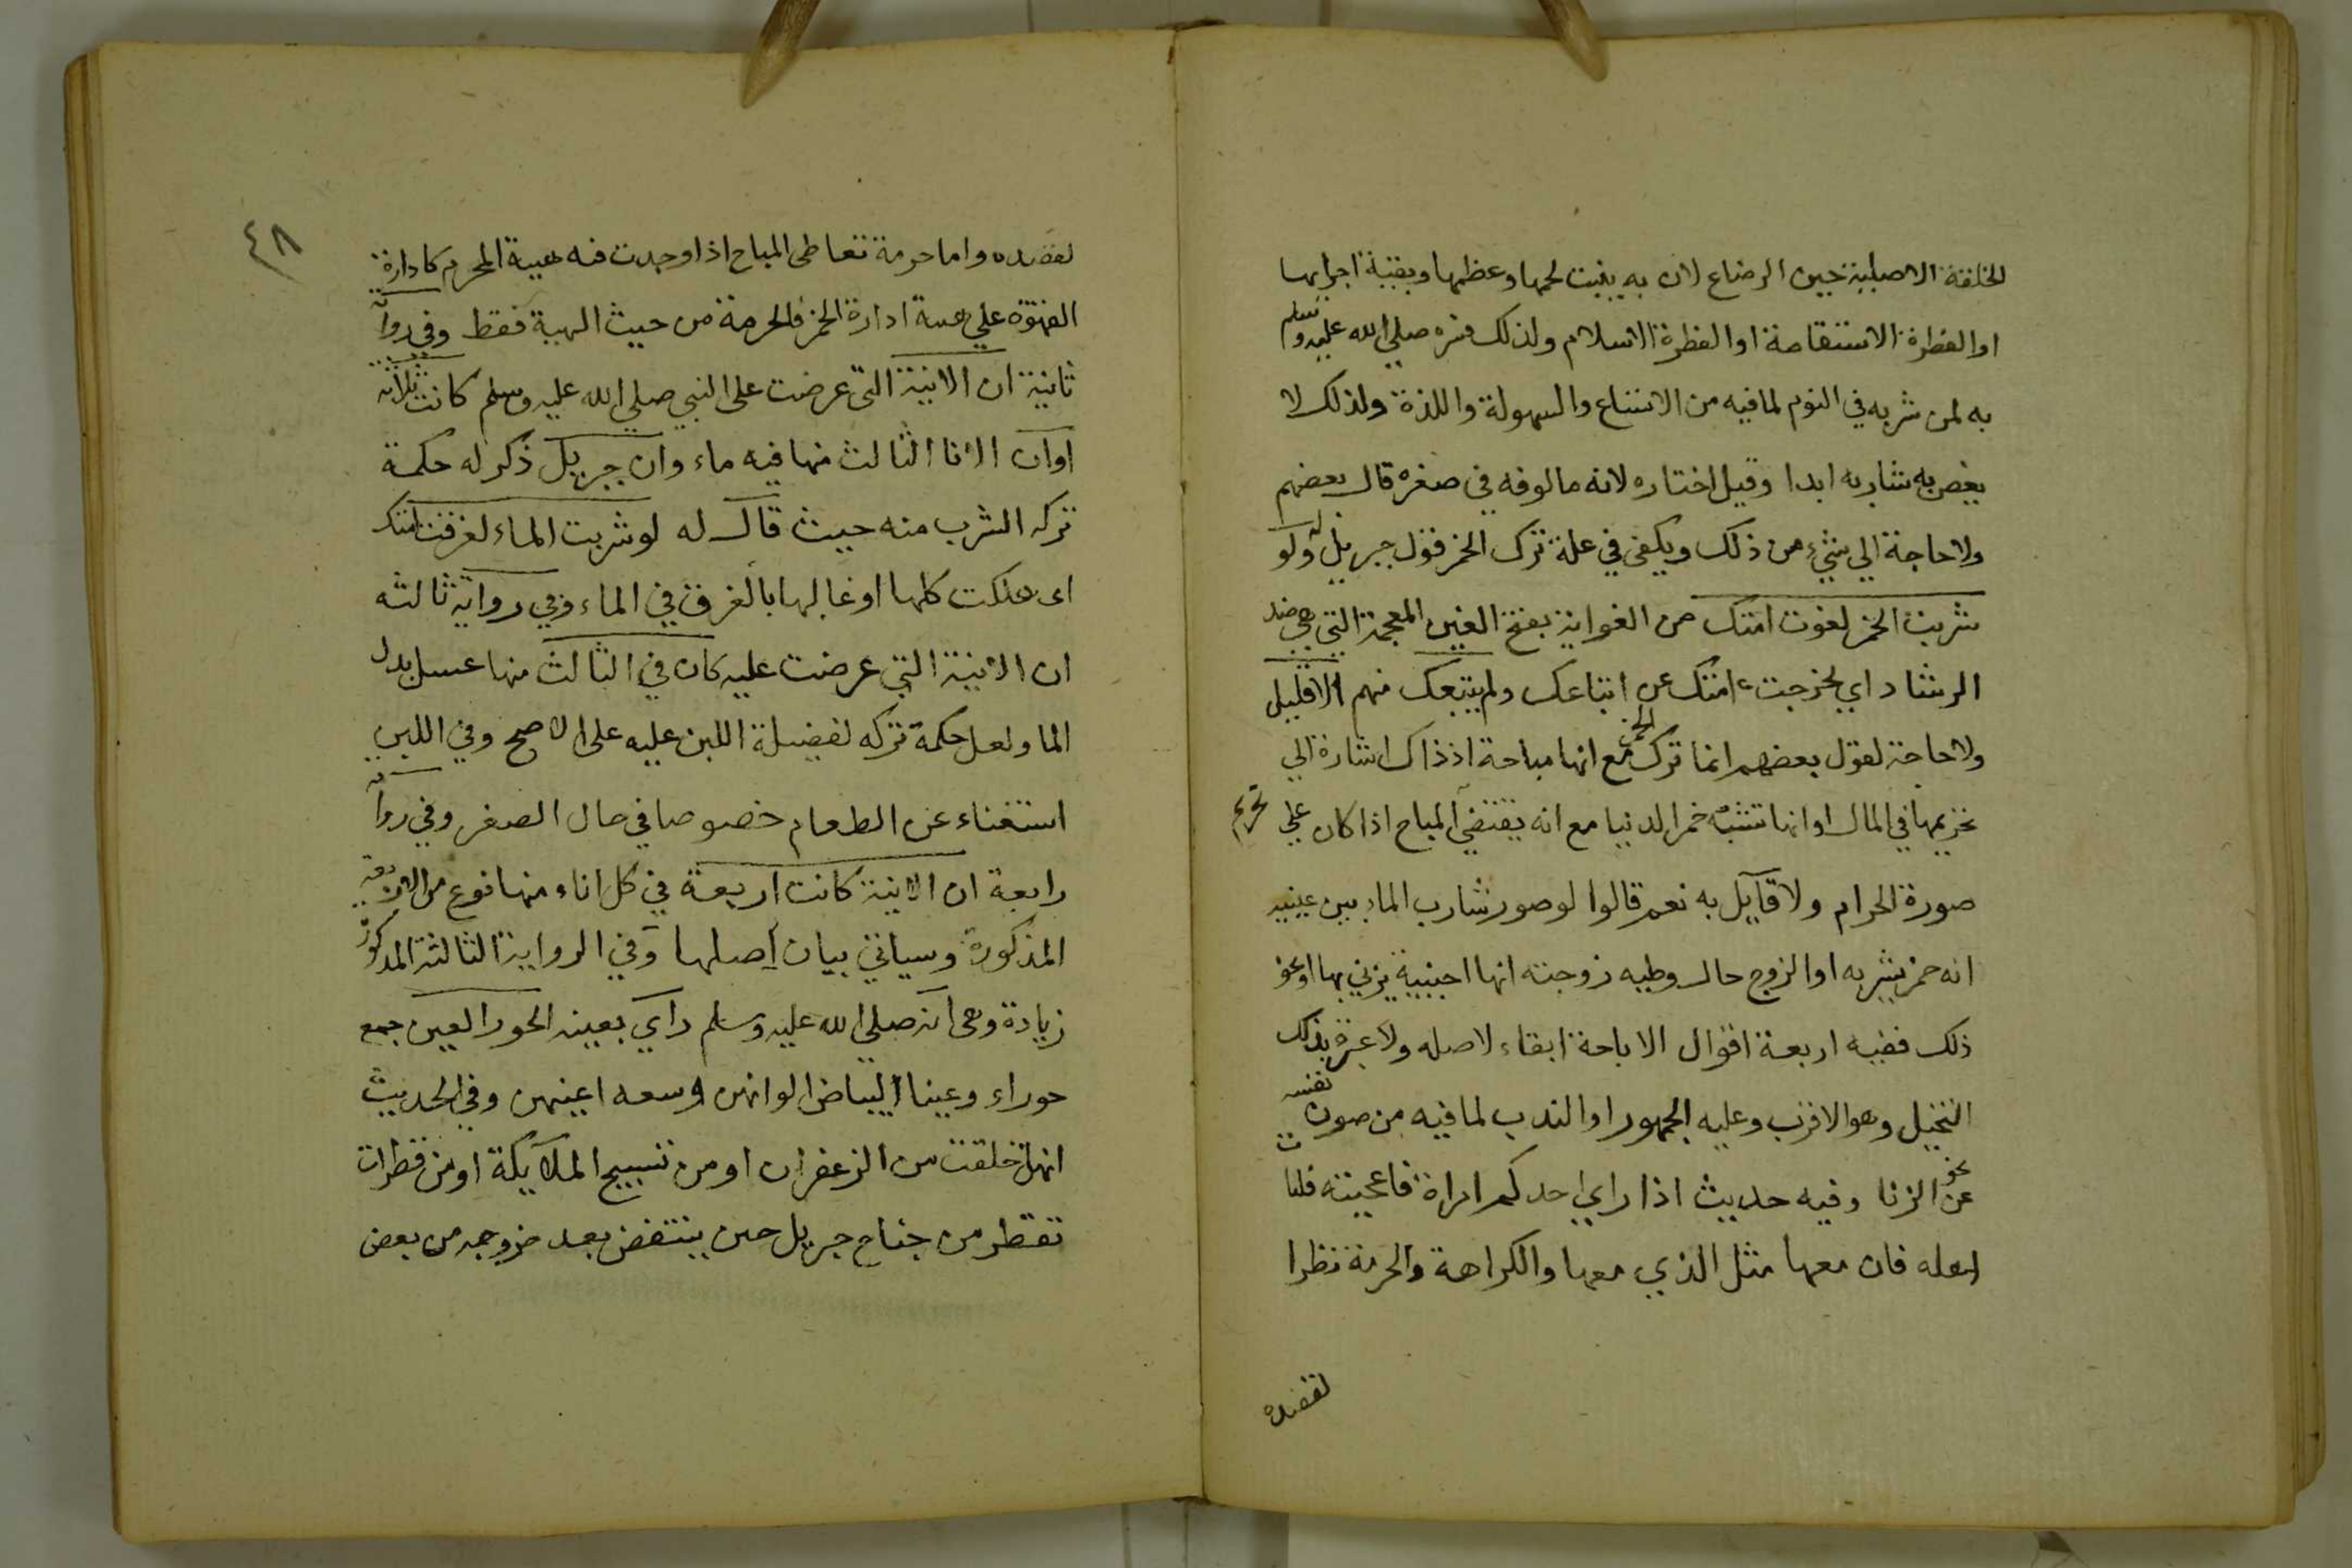 الخلقة الاصلية حين الرضاع لان به ينبت لحمها وعظمها وبقية اجزايها
او الفطرة الاستقامة او الفطرة الاسلام ولذلك فسره صلي الله عليه وسلم
به لمن شربه في النوم لما فيه من الاتساع والسهولة واللذة ولذلك لا
يغص به شاربه ابدا وقيل اختاره لانه مالوفه في صغره قال بعضهم
ولا حاجة الي شيء من ذلك ويكفي في علة ترك الخمر قول جبريل له ولو
شربت الخمر لغوت امتك من الغواية بفتح الغين المعجمة التي هي ضد
الرشاد اي لخرجت امتك عن اتباعك ولم يتبعك منهم الا قليل
ولا حاجة لقول بعضهم انما ترك الخمر مع انها مباحة اذ ذاك اشارة الي
تحريمها في المال او انها تشبه خمر الدنيا مع انه يقتضي تحريم المباح اذا كان علي
صورة الحرام ولا قآيل به نعم قالوا لو صور شارب الماء بين عينيه
انه خمر يشربه او الزوج حال وطيه زوجته انها اجنبية يزني بها او نحو
ذلك ففيه اربعة اقوال الاباحة ابقاء لاصله ولا عبرة بذلك
التخيل وهو الاقرب وعليه الجمهور او الندب لما فيه من صون نفسه
عن نحو الزنا وفيه حديث اذا راي احدكم امراة فاعجبته فليات
اهله فان معها مثل الذي معها والكراهة والحرمة نظرا
لقصده
٤٨
لقصده واما حرمة تعاطي المباح اذا وجدت فيه هيبة المحرم كادارة
القهوة علي هيبة ادارة الخمر فالحرمة من حيث الهيبة فقط وفي رواية
ثانية ان الانية التي عرضت على النبي صلي الله عليه وسلم كانت ثلاثه
اوان الانا الثالث منها فيه ماء وان جبريل ذكر له حكمة
تركه الشرب منه حيث قال له لو شربت الماء لغرقت امتك
اى هلكت كلها او غالبها بالغرق في الماء وفي رواية ثالثه
ان الانية التي عرضت عليه كان في الثالث منها عسل بدل
الما ولعل حكمة تركه لفضيلة اللبن عليه على الاصح وفي اللبن
استغناء عن الطعام خصوصا في حال الصغر وفي رواية
رابعة ان الانية كانت اربعة في كل اناء منها نوع من الاربعة
المذكورة وسياتي بيان اصلها وفي الرواية الثالثة المذكورة
زيادة وهى انه صلي الله عليه وسلم راي بعينه الحور العين جمع
حوراء وعينا لبياض الوانهن وسعه اعينهن وفي الحديث
انهن خلقت من الزعفران او من تسبيح الملآيكة او من قطرات
تقطر من جناح جبريل حين ينتفض بعد خروجه من بعض